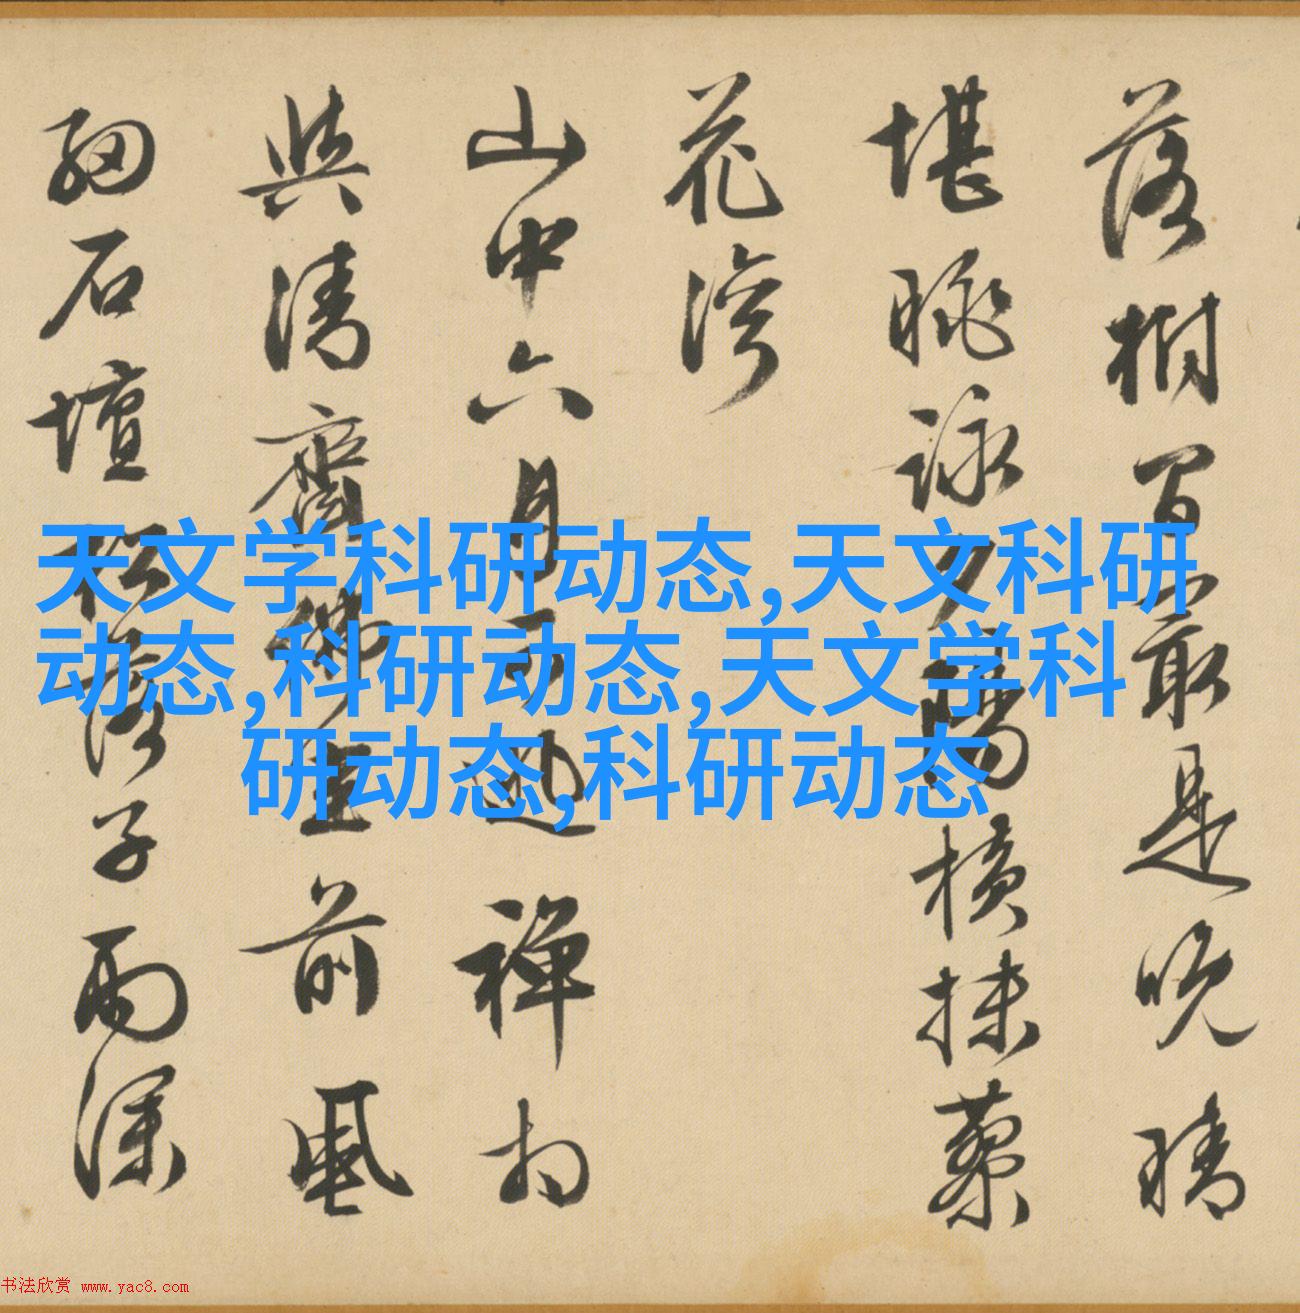 落樹間最是晚晴
堪眺詠夕陽橫抹蓼
花灣
山中六月 禪
清齋佛坐前風
細石壇松落子雨深
天文学科研动态,天文科研
动态,科研动态,天文学科
研动态,科研动态
书法欣赏 www.yac8.com